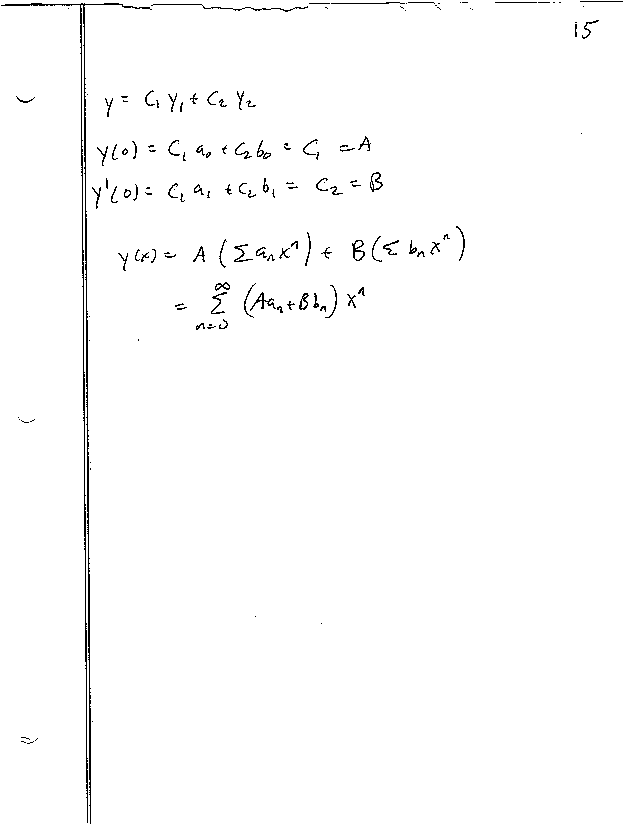 15
y = C₁ y₁ + C₂ y₂
y(0) = C₁ a₀ + C₂ b₀ = C₁ = A
y'(0) = C₁ a₁ + C₂ b₁ = C₂ = B
y(x) = A (Σ aₙxⁿ) + B (Σ bₙxⁿ)
= ∑ₙ₌₀^∞ (Aaₙ + Bbₙ) xⁿ